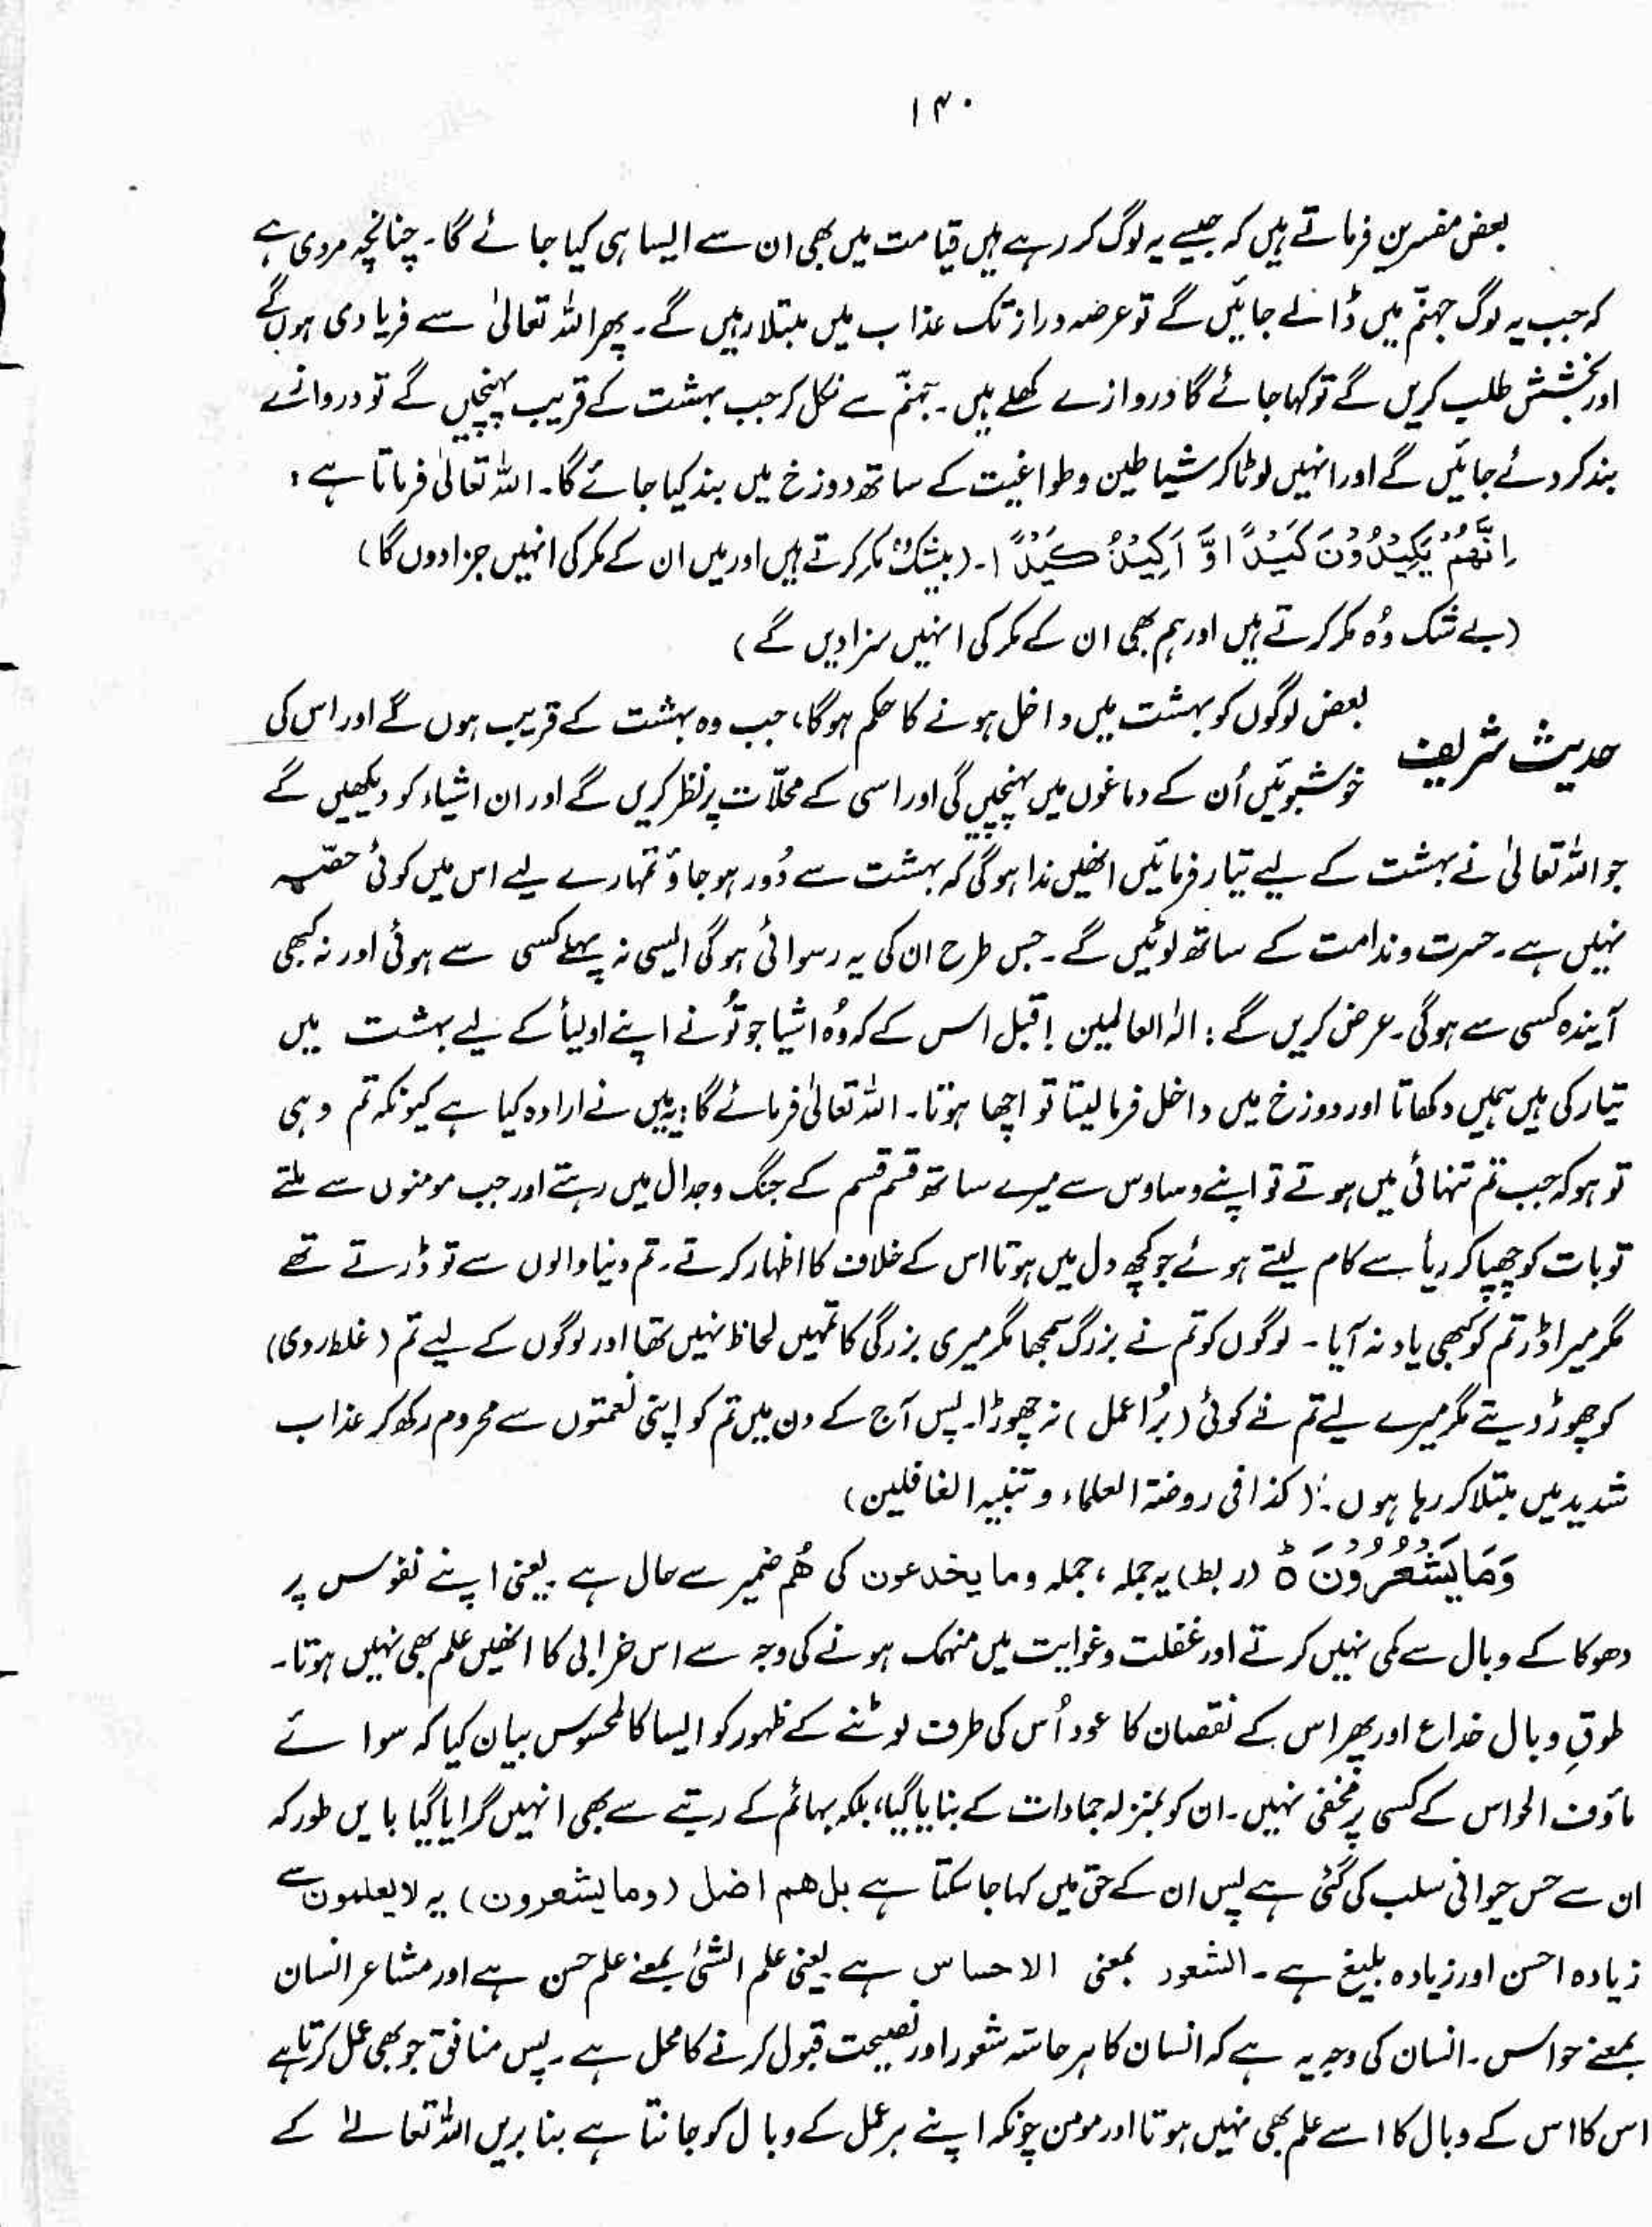 ۱۴۰
بعض مفسرین فرماتے ہیں کہ جیسے یہ لوگ کر رہے ہیں قیامت میں بھی ان سے ایسا ہی کیا جائے گا۔ چنانچہ مروی ہے
کہ جب یہ لوگ جہنّم میں ڈالے جائیں گے تو عرصہ دراز تک عذاب میں مبتلا رہیں گے۔ پھر اللہ تعالیٰ سے فریادی ہوں گے
اور بخشش طلب کریں گے تو کہا جائے گا دروازے کھلے ہیں۔ جہنّم سے نکل کر جب بہشت کے قریب پہنچیں گے تو دروازے
بند کر دئے جائیں گے اور انہیں لوٹا کر شیاطین و طواغیت کے ساتھ دوزخ میں بند کیا جائے گا۔ اللہ تعالیٰ فرماتا ہے :
اِنَّهُمْ يَكِيْدُوْنَ كَيْدًا وَّ اَكِيْدُ كَيْدًا۔ (بیشک وہ مکر کرتے ہیں اور میں ان کے مکر کی انہیں جزا دوں گا)
(بے شک وُہ مکر کرتے ہیں اور ہم بھی ان کے مکر کی انہیں سزا دیں گے)
حدیث شریف بعض لوگوں کو بہشت میں داخل ہونے کا حکم ہوگا، جب وہ بہشت کے قریب ہوں گے اور اس کی
خوشبوئیں اُن کے دماغوں میں پہنچیں گی اور اسی کے محلّات پر نظر کریں گے اور ان اشیاء کو دیکھیں گے
جو اللہ تعالیٰ نے بہشت کے لیے تیار فرمائیں انھیں ندا ہوگی کہ بہشت سے دُور ہو جاؤ تمہارے لیے اس میں کوئی حصّہ
نہیں ہے۔ حسرت و ندامت کے ساتھ لوٹیں گے۔ جس طرح ان کی یہ رسوائی ہوگی ایسی نہ پہلے کسی سے ہوئی اور نہ کبھی
آیندہ کسی سے ہوگی۔ عرض کریں گے : الٰہ العالمین ! قبل اس کے کہ وُہ اشیا جو تُو نے اپنے اولیأ کے لیے بہشت میں
تیار کی ہیں ہمیں دکھاتا اور دوزخ میں داخل فرما لیتا تو اچھا ہوتا۔ اللہ تعالیٰ فرمائے گا: یہ میں نے ارادہ کیا ہے کیونکہ تم وہی
تو ہو کہ جب تم تنہائی میں ہوتے تو اپنے وساوس سے میرے ساتھ قسم قسم کے جنگ و جدال میں رہتے اور جب مومنوں سے ملتے
تو بات کو چھپا کر ریأ سے کام لیتے ہوئے جو کچھ دل میں ہوتا اس کے خلاف کا اظہار کرتے۔ تم دنیا والوں سے تو ڈرتے تھے
مگر میرا ڈر تم کو کبھی یاد نہ آیا۔ لوگوں کو تم نے بزرگ سمجھا مگر میری بزرگی کا تمہیں لحاظ نہیں تھا اور لوگوں کے لیے تم (غلط روی)
کو چھوڑ دیتے مگر میرے لیے تم نے کوئی (بُرا عمل) نہ چھوڑا۔ پس آج کے دن میں تم کو اپنی نعمتوں سے محروم رکھ کر عذاب
شدید میں مبتلا کر رہا ہوں۔ (کذا فی روضۃ العلماء و تنبیہ الغافلین)
وَمَا يَشْعُرُوْنَ ۵ (ربط) یہ جملہ ، جملہ وما یخدعون کی ھُم ضمیر سے حال ہے۔ یعنی اپنے نفوس پر
دھوکا کے وبال سے کمی نہیں کرتے اور غفلت و غوایت میں منہمک ہونے کی وجہ سے اس خرابی کا انھیں علم بھی نہیں ہوتا۔
طوقِ وبال خداع اور پھر اس کے نقصان کا عود اُس کی طرف لوٹنے کے ظہور کو ایسا کالمحسوس بیان کیا کہ سوائے
ماؤف الحواس کے کسی پر مخفی نہیں۔ ان کو بمنزلہ جمادات کے بنایا گیا، بلکہ بہائم کے رتبے سے بھی انہیں گرایا گیا بایں طور کہ
ان سے حس حیوانی سلب کی گئی ہے پس ان کے حق میں کہا جا سکتا ہے بل هم اضل (وما یشعرون) یہ لا یعلمون سے
زیادہ احسن اور زیادہ بلیغ ہے۔ الشعور بمعنی الاحساس ہے یعنی علم الشیٔ بمعنے علم حس ہے اور مشاعر انسان
بمعنے حواس۔ انسان کی وجہ یہ ہے کہ انسان کا ہر حاسّہ شعور اور نصیحت قبول کرنے کا محل ہے۔ پس منافق جو بھی عمل کرتا ہے
اس کا اس کے وبال کا اسے علم بھی نہیں ہوتا اور مومن چونکہ اپنے ہر عمل کے وبال کو جانتا ہے بنا بریں اللہ تعالےٰ کے